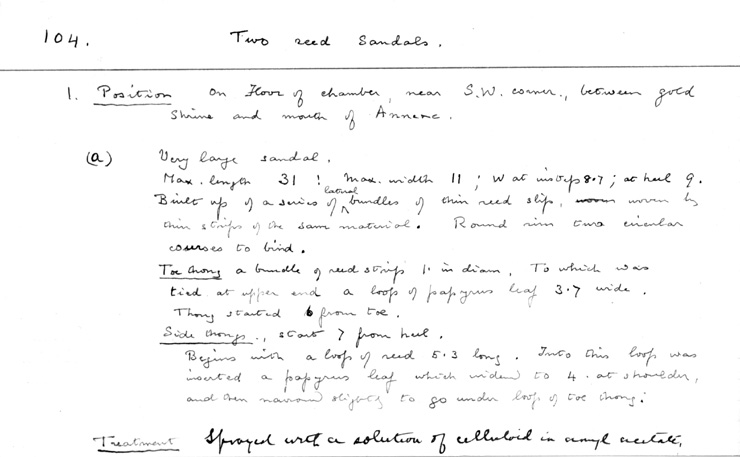 104. Two reed Sandals.
1. Position On Floor of chamber, near S.W. corner, between gold
Shrine and mouth of Annexe.
(a) Very large sandal.
Max. length 31 ; Max. width 11 ; W at instep 8.7 ; at heel 9.
Built up of a series of lateral bundles of thin reed slip, woven by
thin strips of the same material. Round rim two circular
courses to bind.
Toe thong a bundle of reed strips 1. in diam, To which was
tied at upper end a loop of papyrus leaf 3.7 wide.
Thong started 6 from toe.
Side thongs, start 7 from heel.
Begins with a loop of reed 5.3 long. Into this loop was
inserted a papyrus leaf which widened to 4. at shoulder,
and then narrowed slightly to go under loop of toe thong.
Treatment Sprayed with a solution of celluloid in amyl acetate.